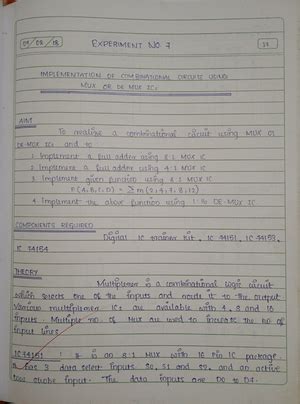 09/08/18 EXPERIMENT NO 7
IMPLEMENTATION OF COMBINATIONAL CIRCUITS USING
MUX OR DE MUX ICs
AIM
To realize a combinational circuit using MUX or
DE-MUX ICs and to
1 Implement a full adder using 8:1 MUX IC
2 Implement a full adder using 4:1 MUX IC
3 Implement given function using 8:1 MUX IC
F(A,B,C,D) = Σm(2,4,7,8,12)
4 Implement the above function using 1:16 DE-MUX IC
COMPONENTS REQUIRED
Digital IC trainer kit, IC 74151, IC 74153,
IC 74154
THEORY
Multiplexer is a combinational logic circuit
which selects one of the inputs and sends it to the output
Various multiplexer ICs are available with 4, 8 and 16
inputs. Multiple no. of MUX are used to increase the no of
input lines.
IC 74151 : It is an 8:1 MUX with 16 pin IC package.
It has 3 data select inputs S0, S1 and S2, and an active
low input. The data inputs are D0 to D7.